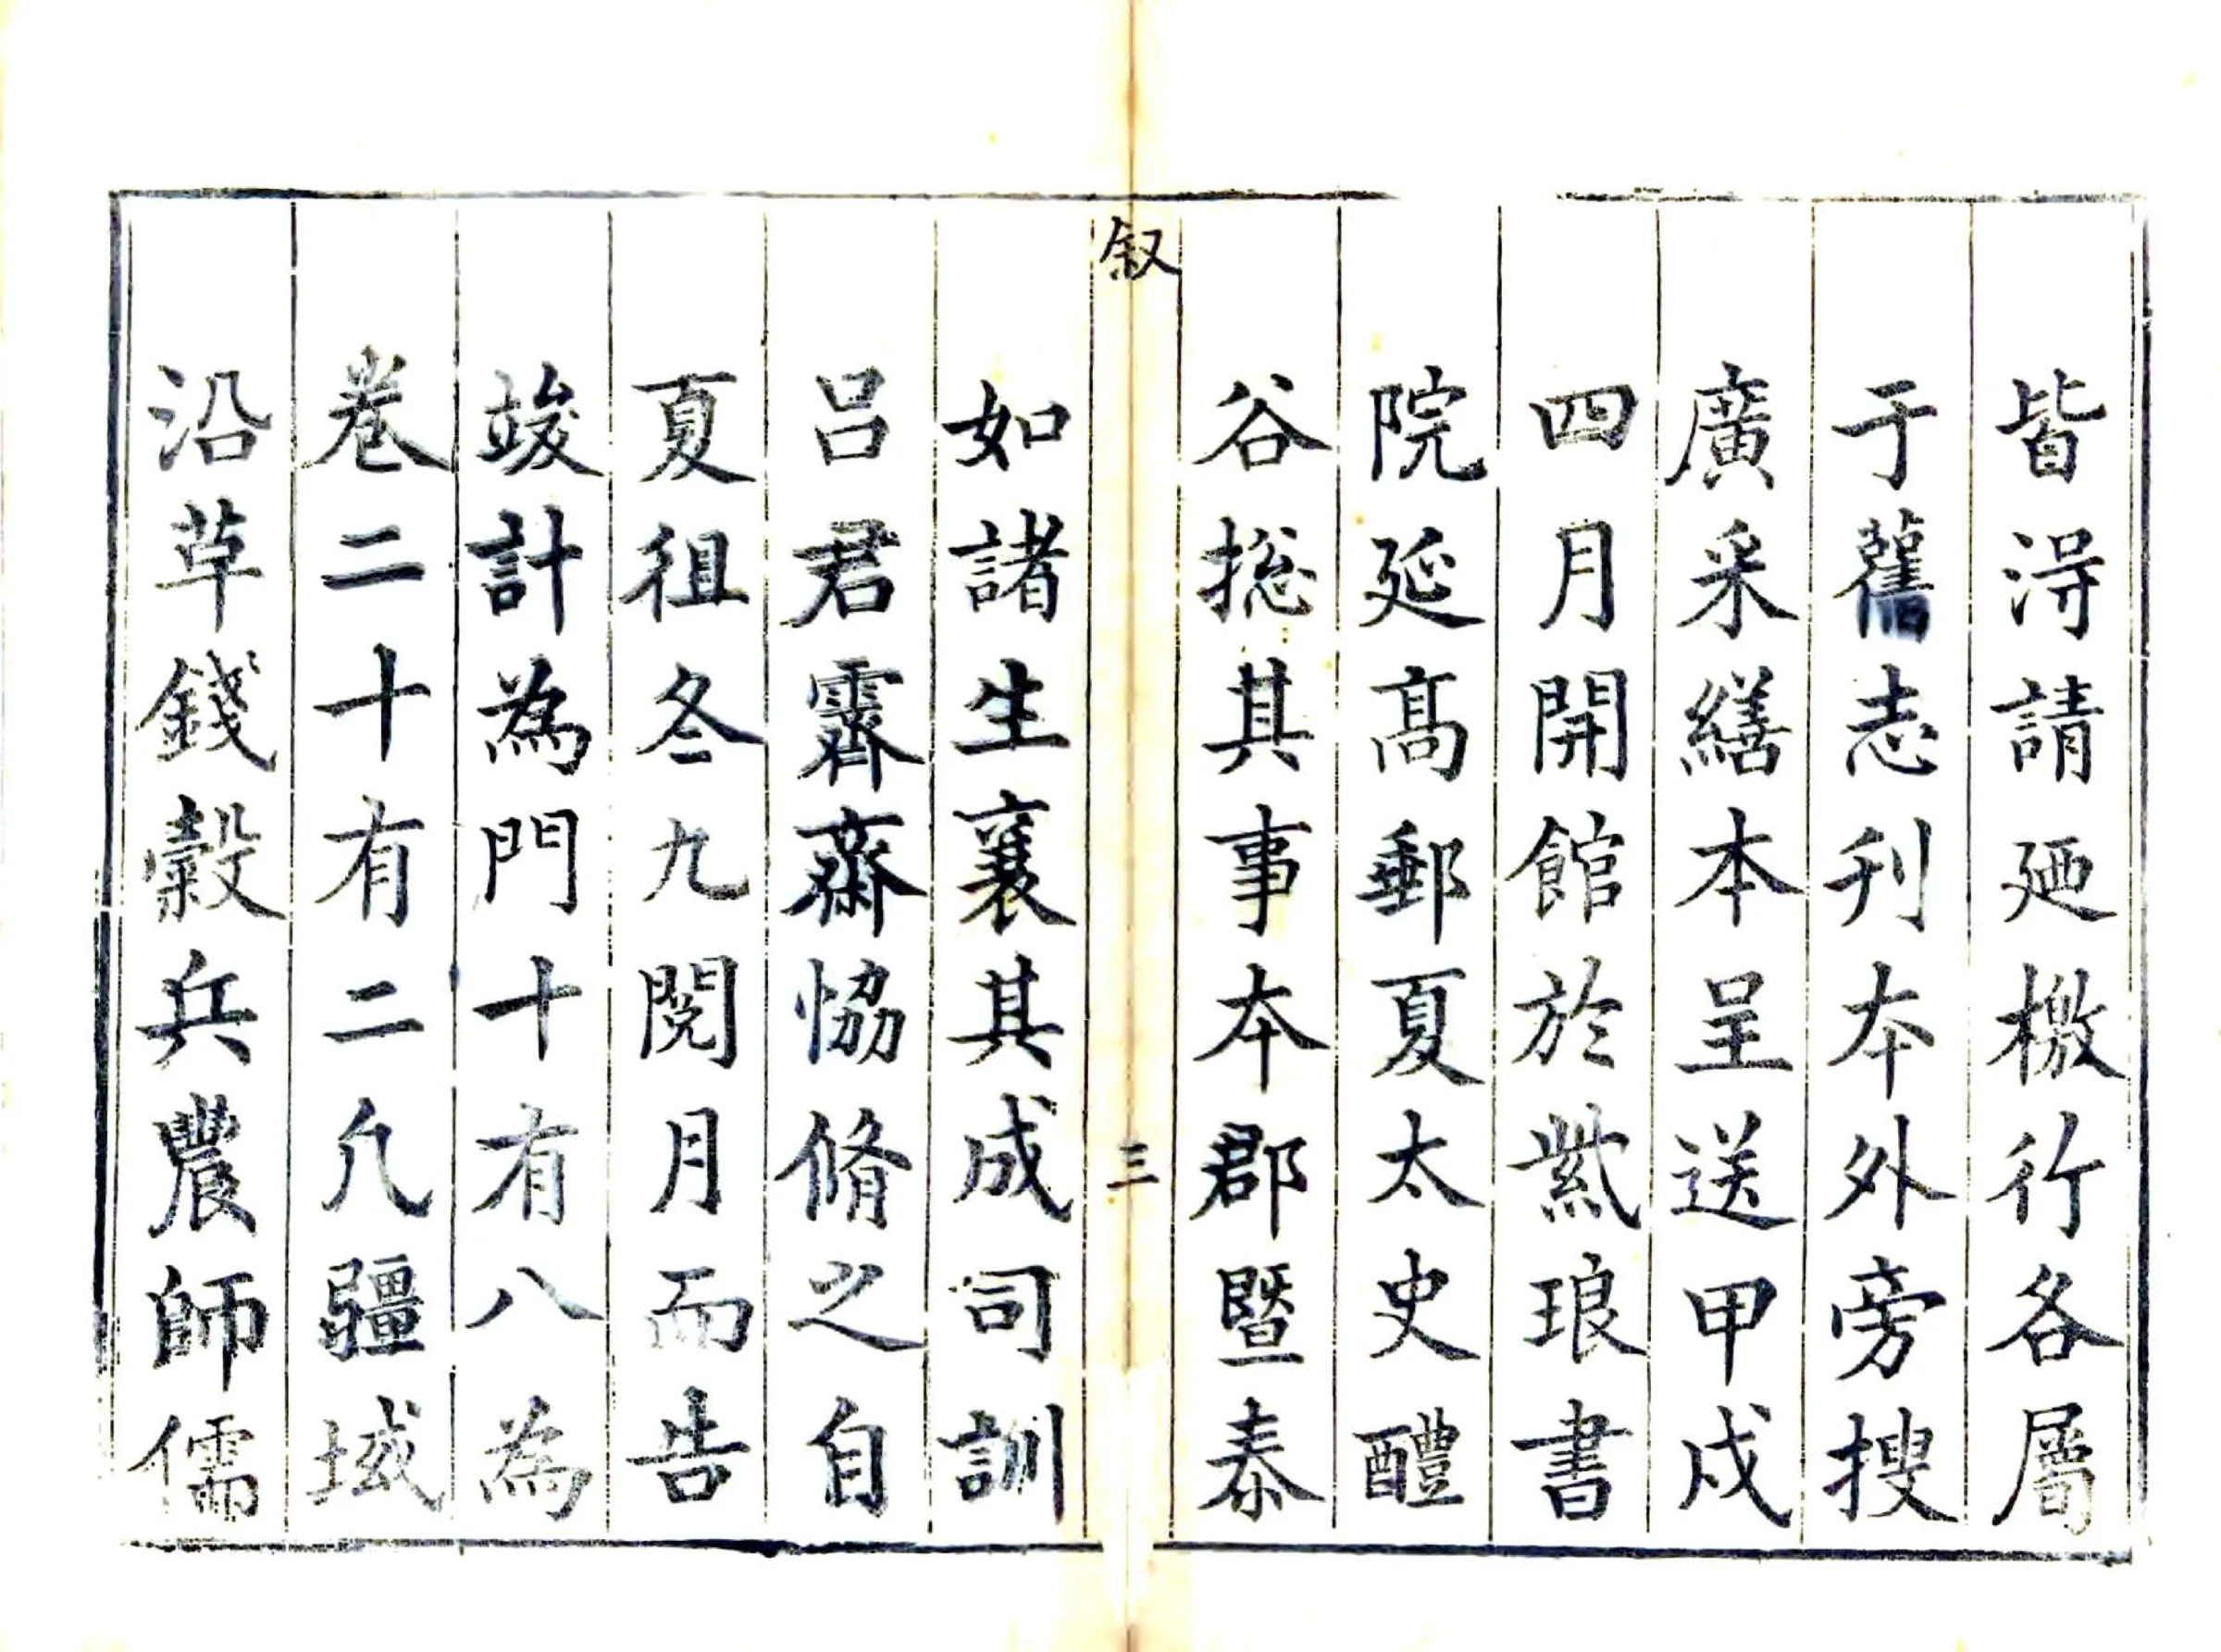 皆淂請廼檄行各層
于舊志刋本外旁搜
廣采繕本呈送甲戌
四月開館於紫琅書
院延髙郵夏太史醴
谷捴其事本郡暨泰
叙
三
如諸生襄其成司訓
吕君霽齋恊脩之自
夏徂冬九閱月而告
竣計為門十有八為
卷二十有二凢疆域
沿革錢糓兵農師儒